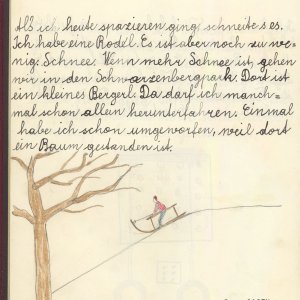 Als ich heute spazieren ging, schneite es.
Ich habe eine Rodel. Es ist aber noch zu we=
nig Schnee. Wenn mehr Schnee ist, gehen
wir in den Schwarzenbergpark. Dort ist
ein kleines Bergerl. Da darf ich manch=
mal schon allein herunterfahren. Einmal
habe ich schon umgeworfen, weil dort
ein Baum gestanden ist.